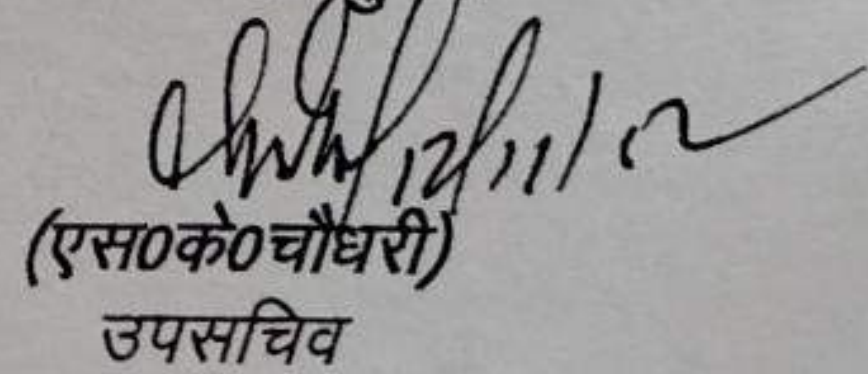 12/11/
(एस0के0चौधरी)
उपसचिव